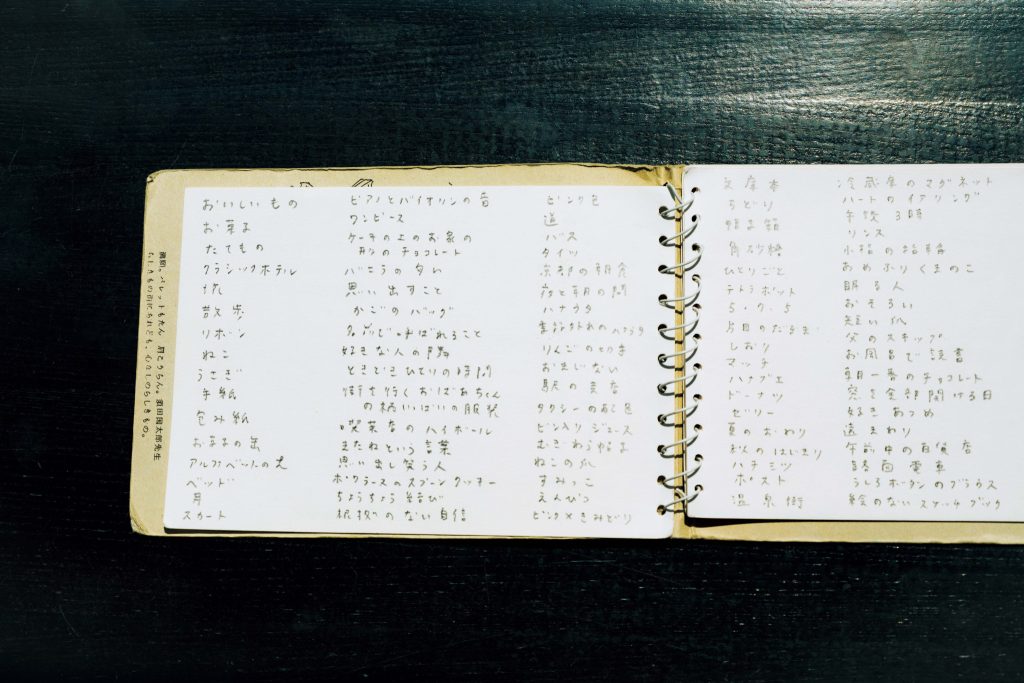 おいしいもの
お菓子
たてもの
クラシックホテル
散歩
リボン
ねこ
うさぎ
手紙
包み紙
お菓子の缶
アルファベットの犬
ベッド
月
スカート
ピアノとバイオリンの音
ワンピース
ケーキの上のお家の
形のチョコレート
バニラの匂い
思い出すこと
かごのバッグ
名前で呼ばれること
好きな人の隣
ときどきひとりの時間
街を行くおばあちゃん
の柄いっぱいの服装
喫茶店のハイボール
またねという言葉
思い出し笑う人
ポワラーヌのスプーンクッキー
ちょうちょ結び
根拠のない自信
ピンク色
道
バス
タイツ
京都の朝食
夜と朝の間
ハナウタ
音程外れのハナウタ
りんごの切手
お互いない
駅の売店
タクシーの配色
ピン入りジュース
むぎわら帽子
ねこの爪
すみっこ
えんぴつ
ピンク×きみどり
文庫本
ちどり
角砂糖
ひとりごと
テトラポット
5・7・5
片目のだるま
しおり
マッチ
ハナブエ
ドーナツ
ゼリー
夏のおわり
秋のはじまり
ハチミツ
ポスト
温泉街
冷蔵庫のマグネット
ハートのイヤリング
午後3時
リンス
おめかりくまのこ
眠る人
おそろい
短い爪
父のスキップ
お風呂で読書
朝一番のチョコレート
窓を全部開ける日
好きあつめ
遠まわり
午前中の百貨店
路面電車
うしろボタンのブラウス
絵のないスケッチブック